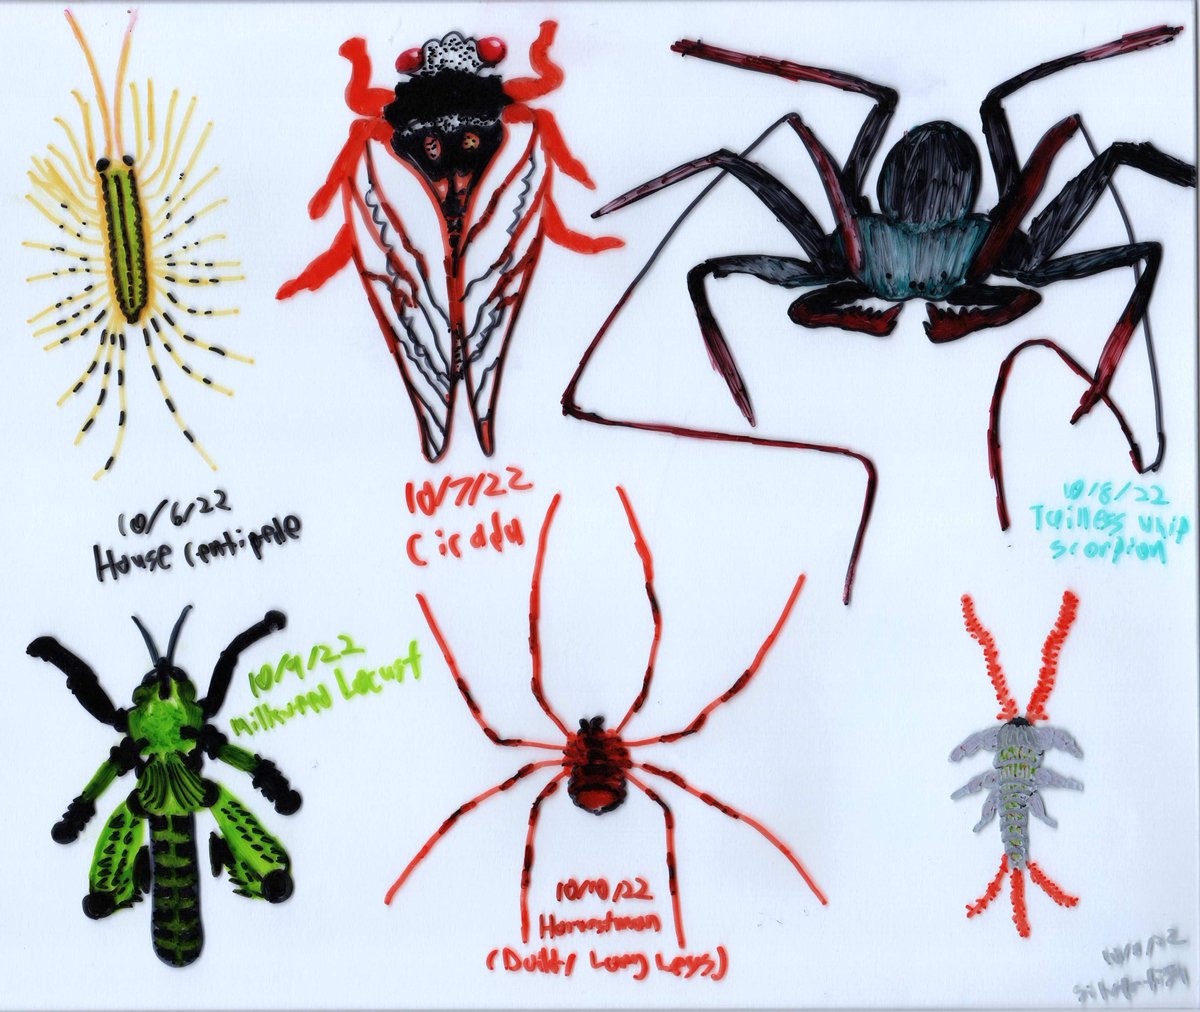 10/6/22
House centipede
10/7/22
Cicada
10/8/22
Tailless whip
scorpion
10/9/22
milkweed Locust
10/10/22
Harvestman
(Daddy Long Legs)
10/11/22
silverfish